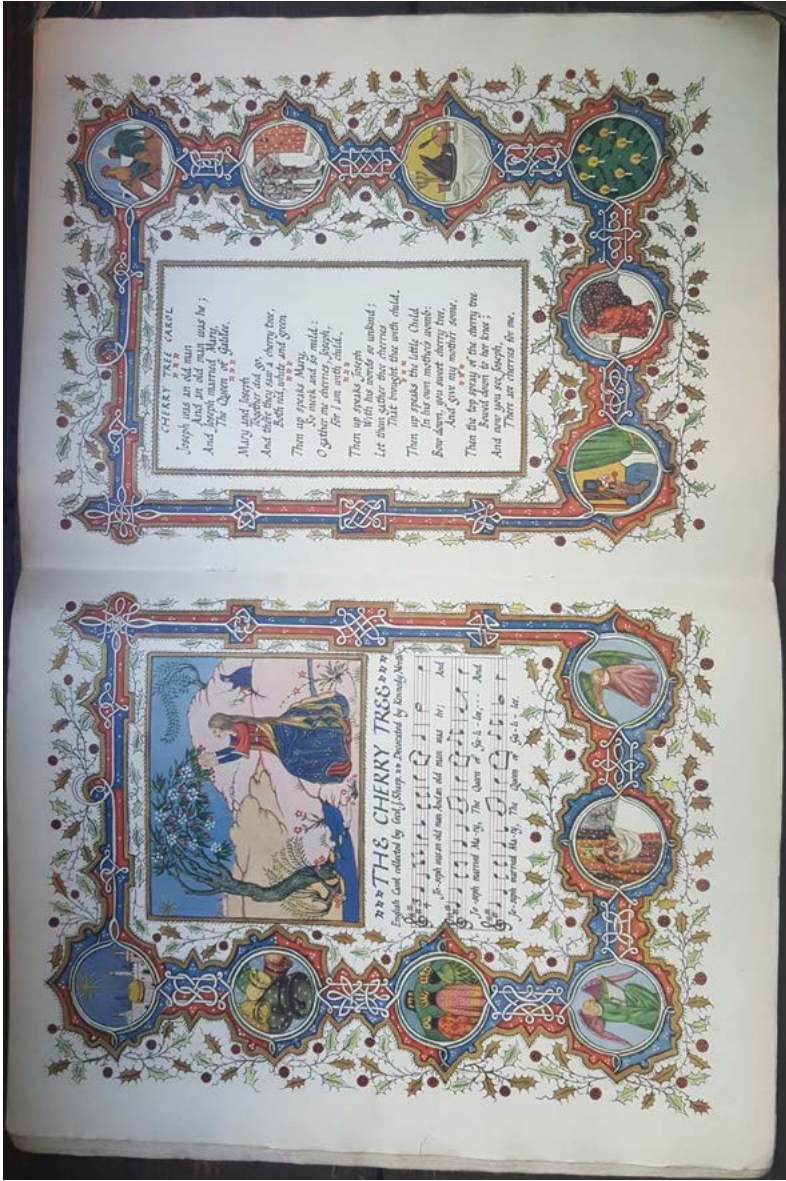 THE CHERRY TREE
English Carol collected by Cecil J. Sharp. Decorated by Kennedy North
Jo-seph was an old man And an old man was he; And
Jo-seph married Ma-ry, The Queen of Ga-li-lee,--- And
Jo-seph married Ma-ry, The Queen of Ga-li-lee.
CHERRY TREE CAROL
Joseph was an old man
And an old man was he;
And Joseph married Mary,
The Queen of Galilee.
Mary and Joseph
Together did go,
And there they saw a cherry tree,
Both red, white and green
Then up speaks Mary,
So meek and so mild:
O gather me cherries Joseph,
For I am with child.
Then up speaks Joseph
With his words so unkind:
Let them gather thee cherries
That brought thee with child.
Then up speaks the little Child
In his own mother's womb:
Bow down, you sweet cherry tree,
And give my mother some.
Then the top spray of the cherry tree
Bowed down to her knee:
And now you see, Joseph,
There are cherries for me.